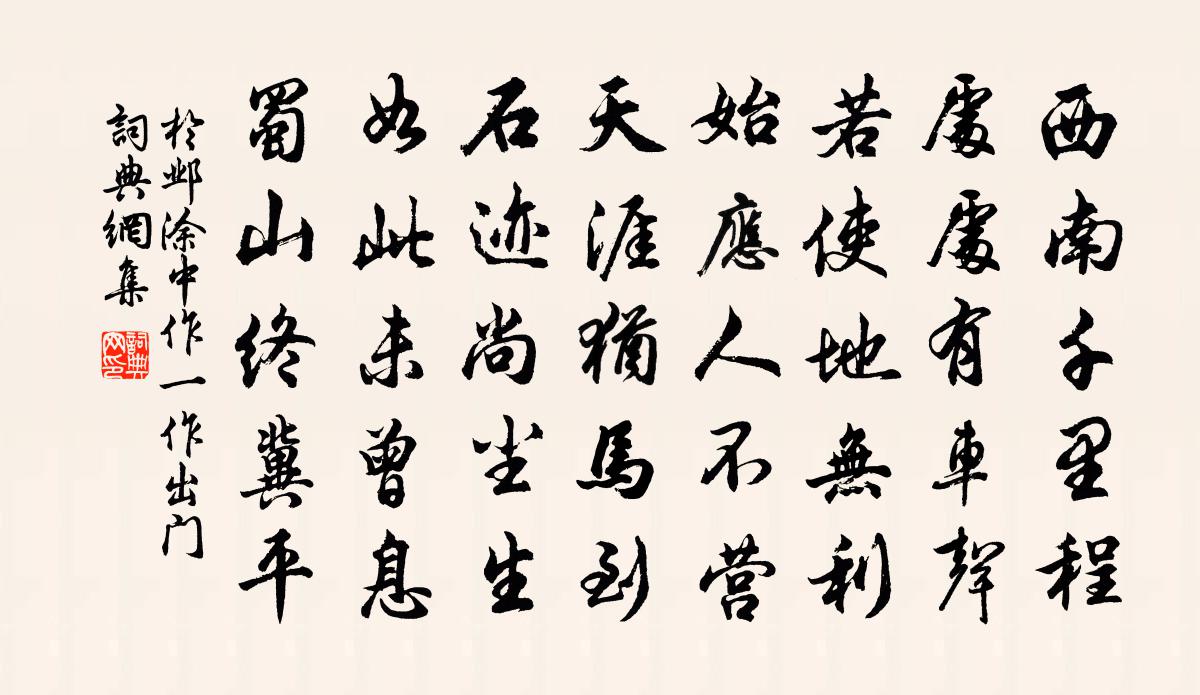 西南千里程
處處有車聲
若使地無利
始應人不营
天涯猶馬到
石迹尚尘生
如此未曾息
蜀山终冀平
於邺涂中作一作出门
詞典網集
詞典网印